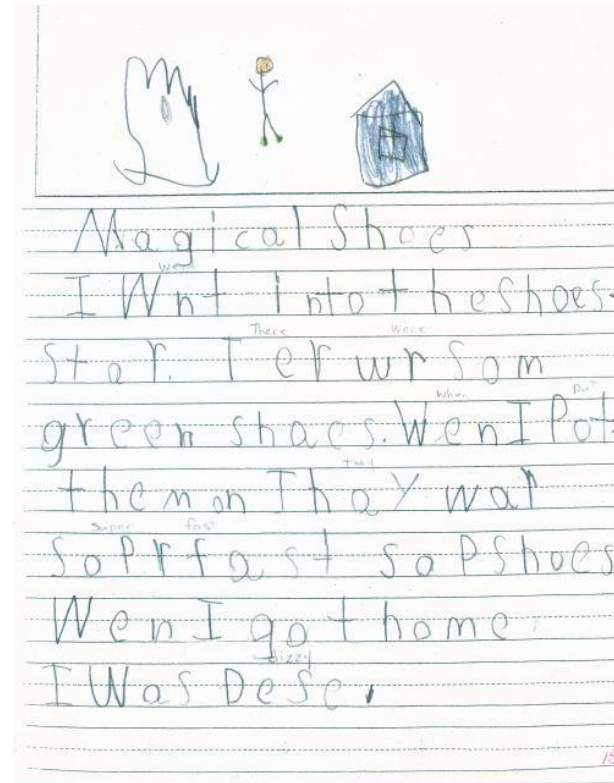 Magical Shoes
went
I Wnt into the shoes.
There were
Stor. Ter wr Som
when put
green shoes. Wen I Pot
they
them on Thay war
super fast
SoPr fast soP Shoes
Wen I got home
dizzy
I Was Dese.